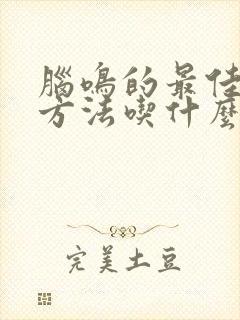 腦鳴的最佳
方法喫什麼
完美土豆